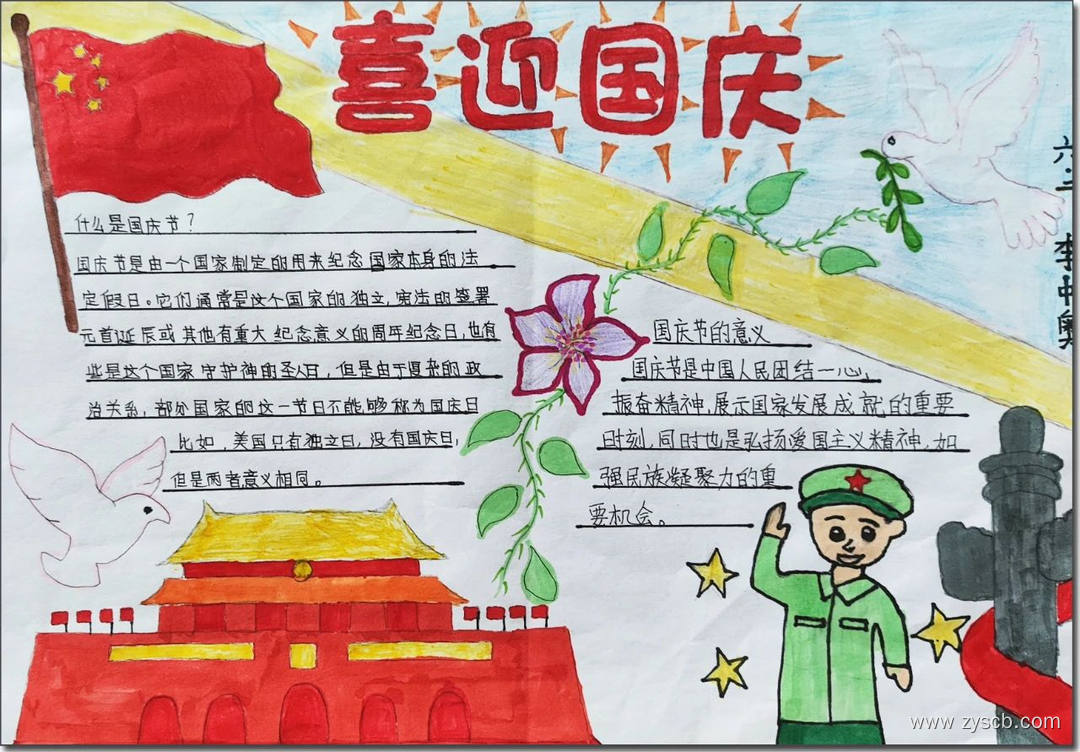 喜迎国庆
六三 李中奥
什么是国庆节？
国庆节是由一个国家制定的用来纪念国家本身的法
定假日。它们通常是这个国家的独立，宪法的签署
元首诞辰或其他有重大纪念意义的周年纪念日，也有
些是这个国家守护神的圣人日，但是由于复杂的政
治关系，部分国家的这一节日不能够称为国庆日
比如，美国只有独立日，没有国庆日，
但是两者意义相同。
国庆节的意义
国庆节是中国人民团结一心，
振奋精神，展示国家发展成就的重要
时刻，同时也是弘扬爱国主义精神，加
强民族凝聚力的重
要机会。
www.zyscb.com